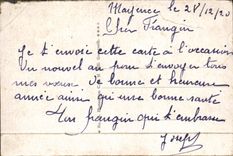 Mayence le 28/12/20
Cher Frangin
Je t'envoie cette carte à l'occasion
du nouvel an pour t'envoyer tous
mes voeux de bonne et heureuse
année ainsi qu'une bonne santé
Ton frangin qui t'embrasse
Joseph